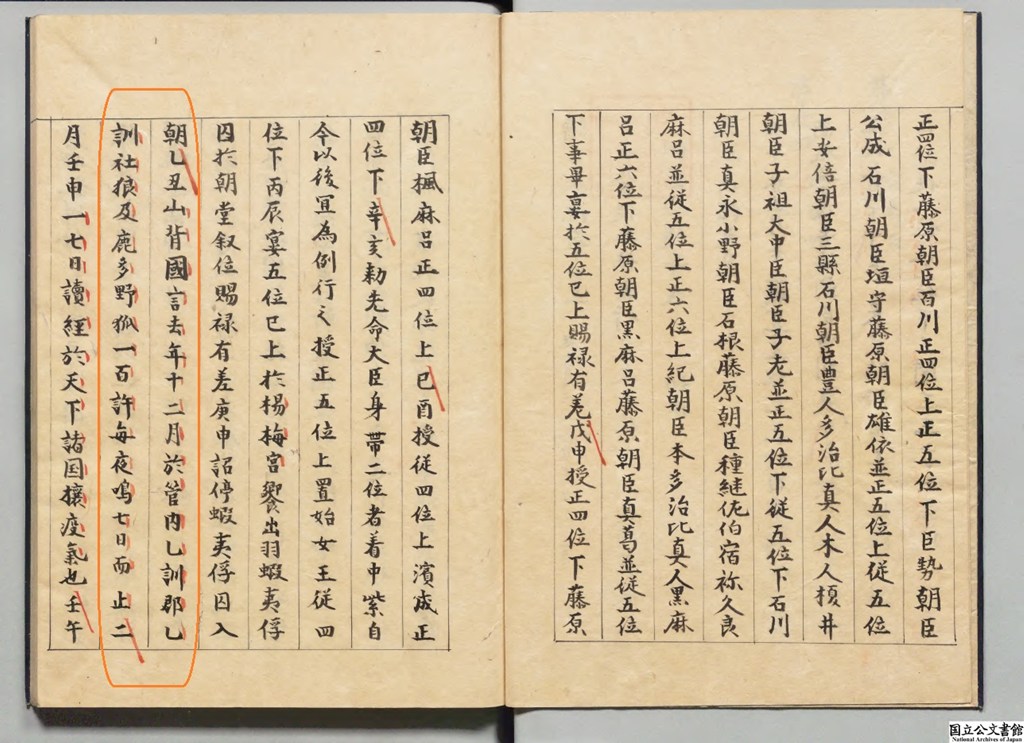 正四位下藤原朝臣百川正四位上正五位下巨勢朝臣
公成石川朝臣垣守藤原朝臣雄依並正五位上従五位
上安倍朝臣三縣石川朝臣豊人多治比真人木人榎井
朝臣子祖大中臣朝臣子老並正五位下従五位下石川
朝臣真永小野朝臣石根藤原朝臣種継佐伯宿祢久良
麻呂並従五位上正六位上紀朝臣本多治比真人黒麻
呂正六位下藤原朝臣黒麻呂藤原朝臣真葛並従五位
下事畢宴於五位已上賜禄有差戊申授正四位下藤原
朝臣楓麻呂正四位上巳酉授従四位上濱成正
四位下辛亥勅先命大臣身帯二位者着中紫自
今以後冝為例行之授正五位上置始女王従四
位下丙辰宴五位已上於楊梅宮饗出羽蝦夷俘
囚於朝堂叙位賜禄有差庚申詔停蝦夷俘囚入
朝乙丑山背國言去年十二月於管内乙訓郡乙
訓社狼及鹿多野狐一百許毎夜鳴七日而止二
月壬申一七日讀經於天下諸国攘疫氣也壬午
国立公文書館
National Archives of Japan